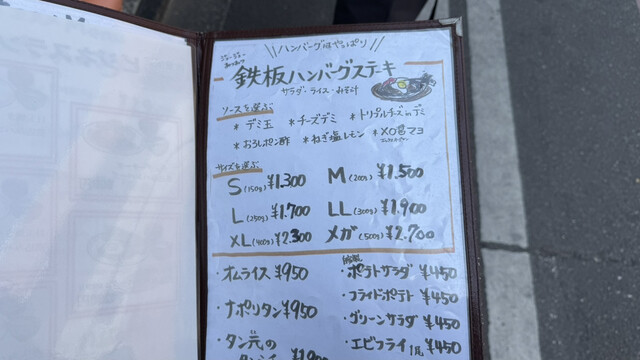 \\ハンバーグはやっぱり//
鉄板ハンバーグステーキ
サラダ・ライス・みそ汁
ソースを選ぶ
* デミ玉 * チーズデミ * トリプルチーズ in デミ
* おろしポン酢 * ねぎ塩レモン * XO醤マヨ
サイズを選ぶ
S(150g) ¥1.300 M(200g) ¥1.500
L(250g) ¥1.700 LL(300g) ¥1.900
XL(400g) ¥2.300 メガ(500g) ¥2.700
・オムライス ¥950
・ナポリタン ¥950
・タン元の
・ポテトサラダ ¥450
・フライドポテト ¥450
・グリーンサラダ ¥450
・エビフライ 1尾 ¥450